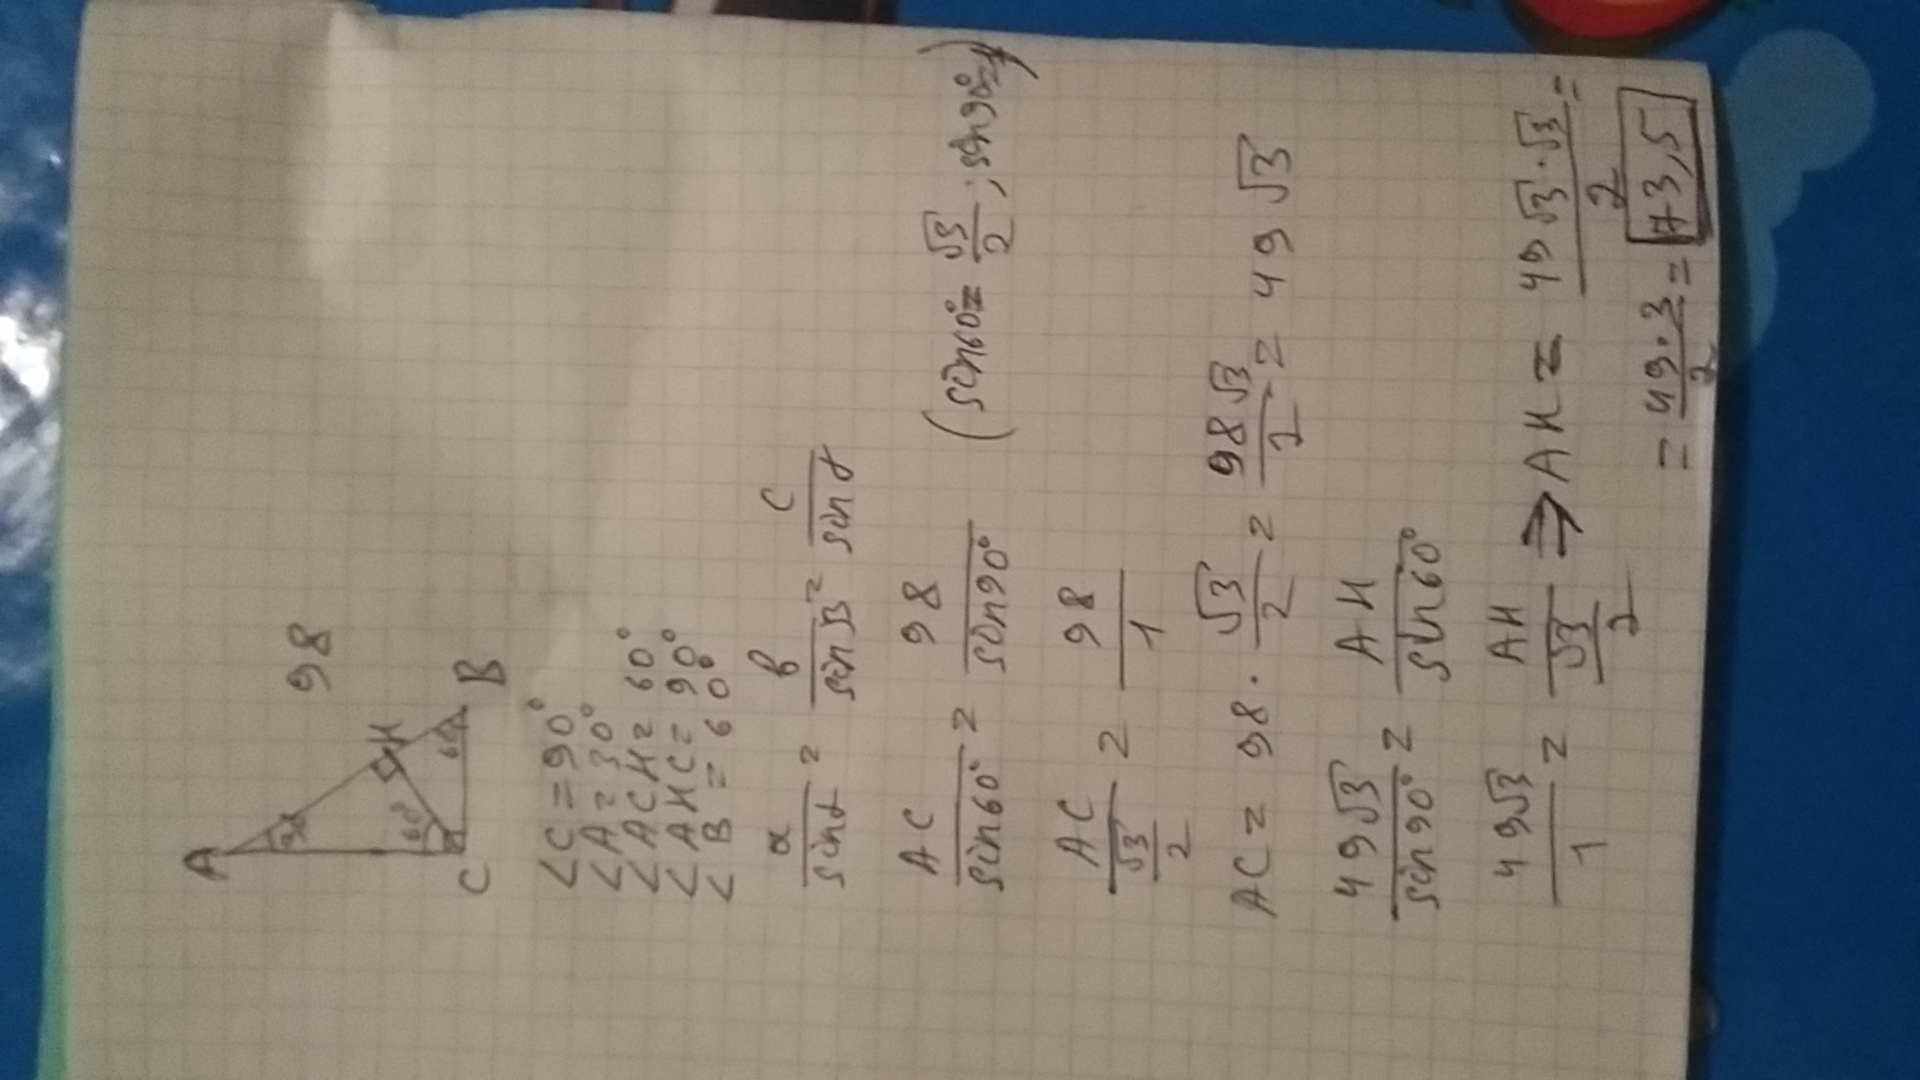 A
98
30
H
60°
60
C
B
∠C = 90°
∠A = 30°
∠ACH = 60°
∠AHC = 90°
∠B = 60°
a/sin α = b/sin β = c/sin γ
AC/sin60° = 98/sin90° (sin60° = √3/2; sin90° = 1)
AC/(√3/2) = 98/1
AC = 98 · √3/2 = 98√3/2 = 49√3
49√3/sin90° = AH/sin60°
49√3/1 = AH/(√3/2) ⇒ AH = 49√3·√3/2 =
= 49·3/2 = 73,5